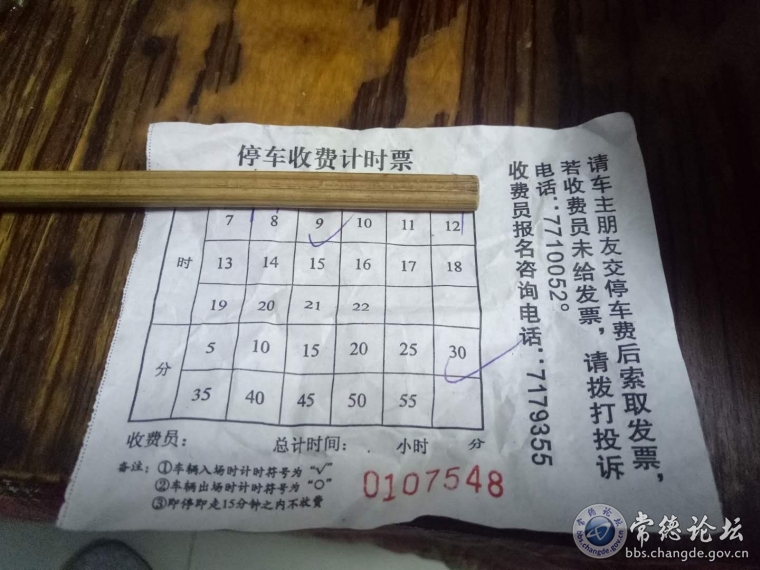 停车收费计时票
时
7 8 9 10 11 12
13 14 15 16 17 18
19 20 21 22
分
5 10 15 20 25 30
35 40 45 50 55
收费员: 总计时间: 小时 分
备注: ①车辆入场时计时符号为“√”
②车辆出场时计时符号为“○”
③即停即走15分钟之内不收费
0107548
请车主朋友交停车费后索取发票,
若收费员未给发票, 请拨打投诉
电话: 7710052。
收费员报名咨询电话: 7179355
常德论坛
常德论坛
bbs.changde.gov.cn
bbs.changde.gov.cn